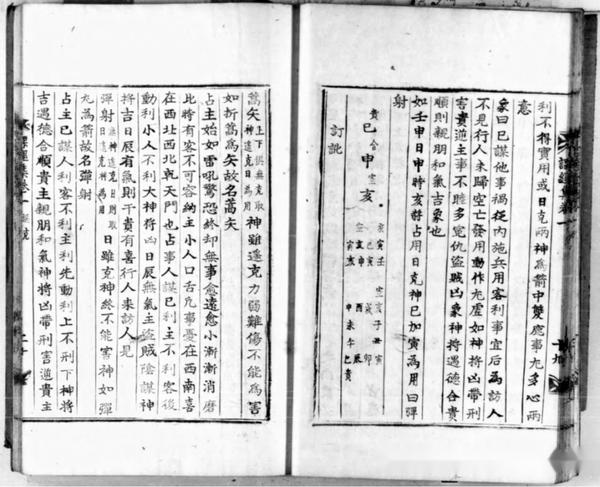 利不得實用或日克兩神為箭中雙鹿事尤多心兩
意
象曰已謀他事禍從內施兵用客利事宜后為訪人
不見行人未歸空亡發用動作尤虛如神將凶帶刑
害貴逆主事不睦多冤仇盜賊凶象神將遇德合貴
順則親朋和氣吉象也
如壬申日申時亥將占用日克神巳加寅為用曰彈
射
貴巳
合申
亥
訂訛
蒿矢 上下俱無克取神遙克日為用 神雖遙克力弱難傷不能為害
如折蒿為矢故名蒿矢
占主始如雷吼驚恐終却無事愈遠愈小漸漸消磨
此時有客不可容納主小人口舌凡事憂在西南喜
在西北西北乾天門也占事人謀已利主不利客後
動利小人不利大神將凶日辰無氣主盜賊陰謀神
將吉日辰有氣則干貴有喜行人來訪人見
彈射 無神遙克日則取日遙克神為用 日雖克神終不能害神如彈
丸為箭故名彈射
占主已謀人利客不利主利先動利上不利下神將
吉遇德合順貴主親朋和氣神將凶帶刑害逆貴主